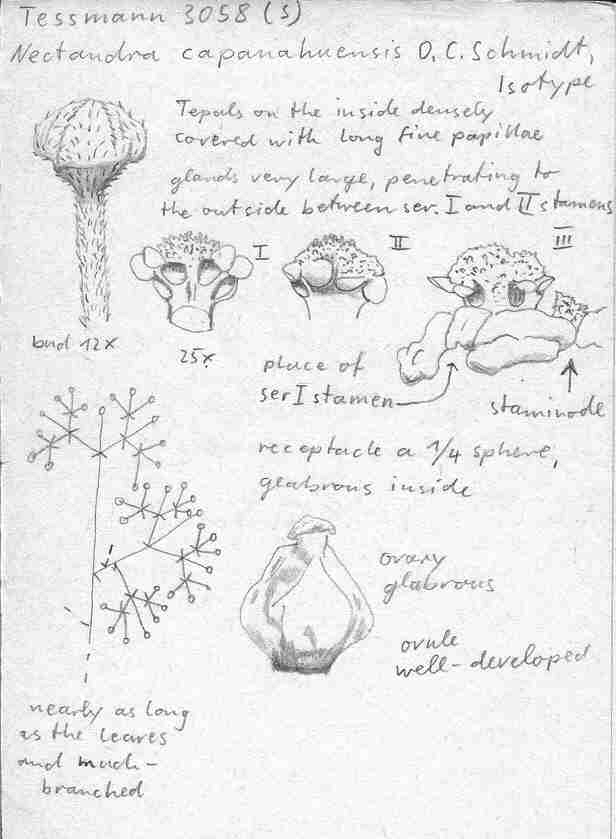 Tessmann 3058 (S)
Nectandra capanahuensis O.C. Schmidt,
Isotype
Tepals on the inside densely
covered with long fine papillae
glands very large, penetrating to
the outside between ser. I and II stamens
I
II
III
bud 12x
25x
place of
ser I stamen
staminode
receptacle a 1/4 sphere,
glabrous inside
ovary
glabrous
ovule
well-developed
nearly as long
as the leaves
and much-
branched